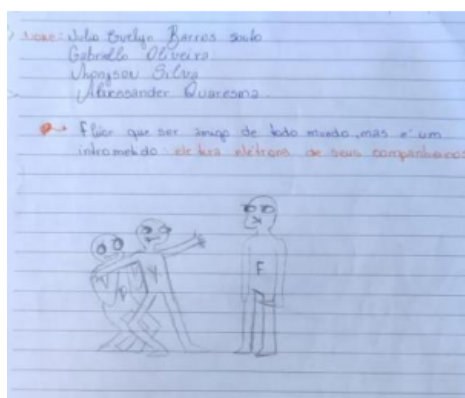 Nome: Julia Evelyn Barros Souto
Gabrielle Oliveira
Jhonyson Silva
Alexssander Quaresma.
Flúor quer ser amigo de todo mundo, mas é um
intrometido: ele tira elétrons de seus companheiros
F